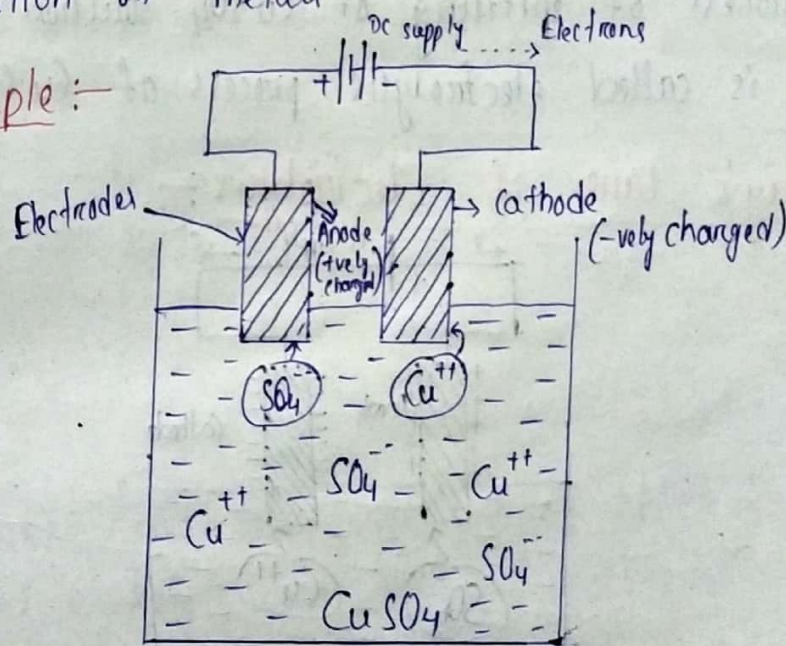 DC supply ....> Electrons
+ -
ple :-
Electrodes
Anode
(+vely
charged)
Cathode
(-vely charged)
SO4--
Cu++
SO4--
Cu++
Cu++
SO4--
CuSO4